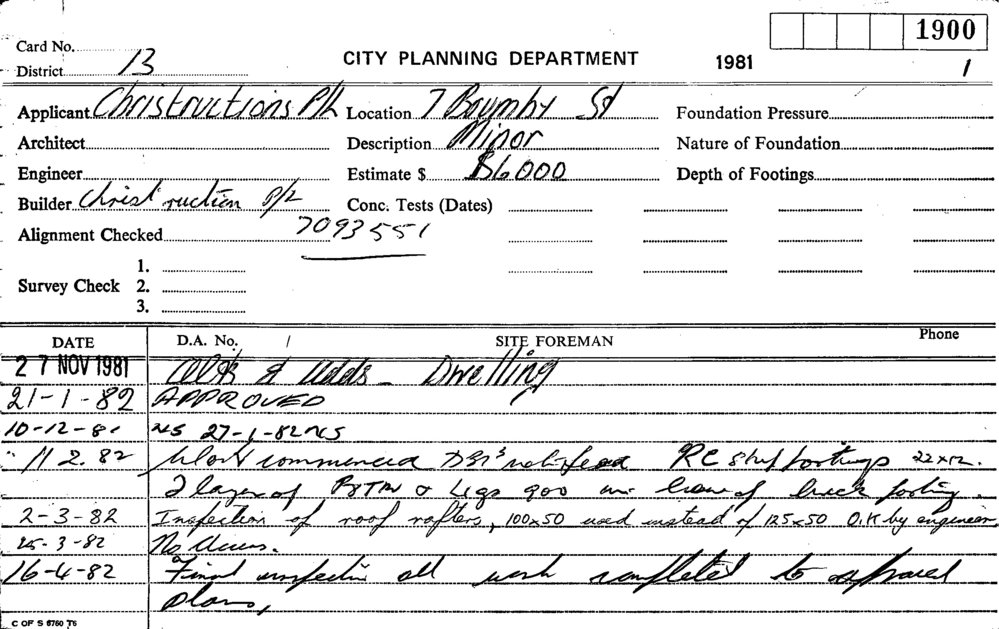 1900
Card No.
District 13
CITY PLANNING DEPARTMENT 1981 1
Applicant Christructions P/L Location 7 Boumby St Foundation Pressure
Architect Description Minor Nature of Foundation
Engineer Estimate $ $6,000 Depth of Footings
Builder Christruction P/L Conc. Tests (Dates)
Alignment Checked 7093551
1.
Survey Check 2.
3.
DATE D.A. No. / SITE FOREMAN Phone
27 NOV 1981 Alts & Adds - Dwelling
21-1-82 APPROVED
10-12-81 NS 27-1-82 NS
11 2.82 Work commenced RC strip footings 22x12.
2 layer of & Ligs 900 of brick footing.
2-3-82 Inspection of roof rafters, 100x50 used instead of 125x50 O.K by engineer
25-3-82 No
16-4-82 Final inspection all work completed to approved
plans,
C OF S 6760 T5